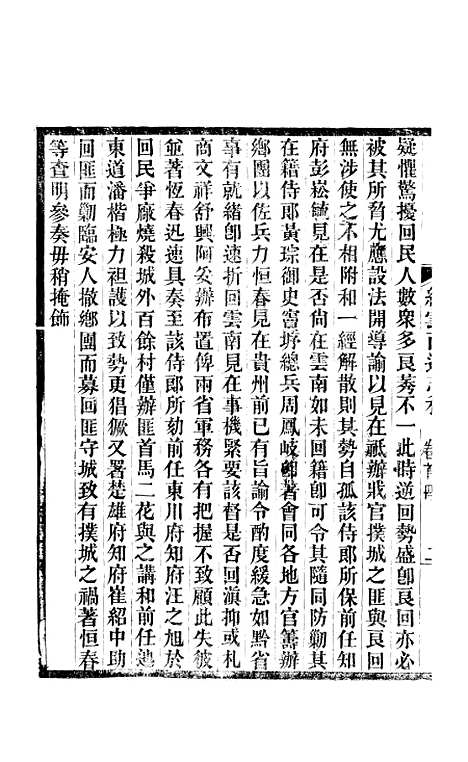 疑懼驚擾回民人數衆多良莠不一此時逆回勢盛卽良回亦必
被其所脅尤應設法開導諭以見在祗辦戕官撲城之匪與良回
無涉使之不相附和一經解散則其勢自孤該侍郎所保前任知
府彭崧毓見在是否尚在雲南如未回籍卽可令其隨同防勦其
在籍侍郎黃琮御史竇垿總兵周鳳岐卽著會同各地方官籌辦
鄉團以佐兵力恒春見在貴州前已有旨諭令酌度緩急如黔省
事有就緒卽速折回雲南見在事機緊要該督是否回滇抑或札
商文祥舒興阿妥辦布置俾兩省軍務各有把握不致顧此失彼
並著恆春迅速具奏至該侍郎所劾前任東川府知府汪之旭於
回民爭廠燒殺城外百餘村僅辦匪首馬二花與之講和前任迆
東道潘楷極力袒護以致勢更猖獗又署楚雄府知府崔紹中助
回匪而勦臨安人撤鄉團而募回匪守城致有撲城之禍著恒春
等查明參奏毋稍掩飾
卷首四
二